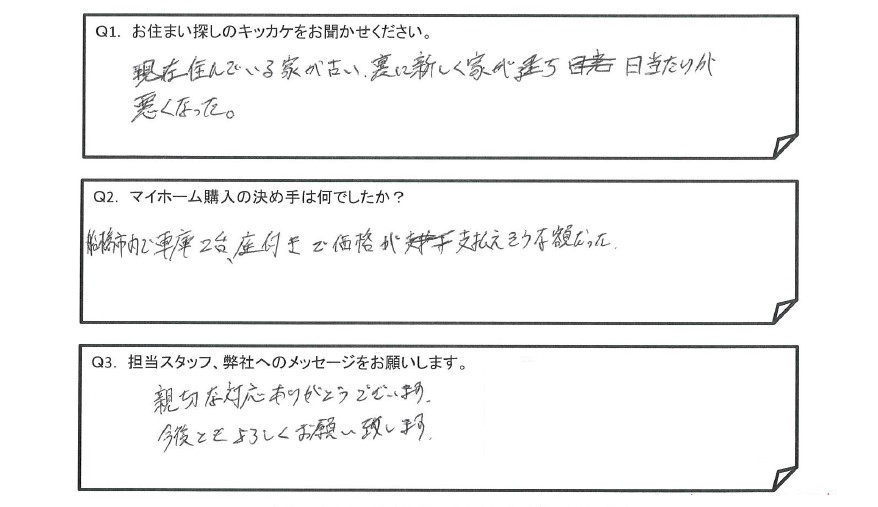 Q1. お住まい探しのキッカケをお聞かせください。
現在住んでいる家が古い、裏に新しく家が建ち 日当たりが
悪くなった。
Q2. マイホーム購入の決め手は何でしたか?
船橋市内で車庫2台、庭付きで価格が 支払えそうな額だった.
Q3. 担当スタッフ、弊社へのメッセージをお願いします。
親切な対応ありがとうございます.
今後ともよろしくお願い致します.